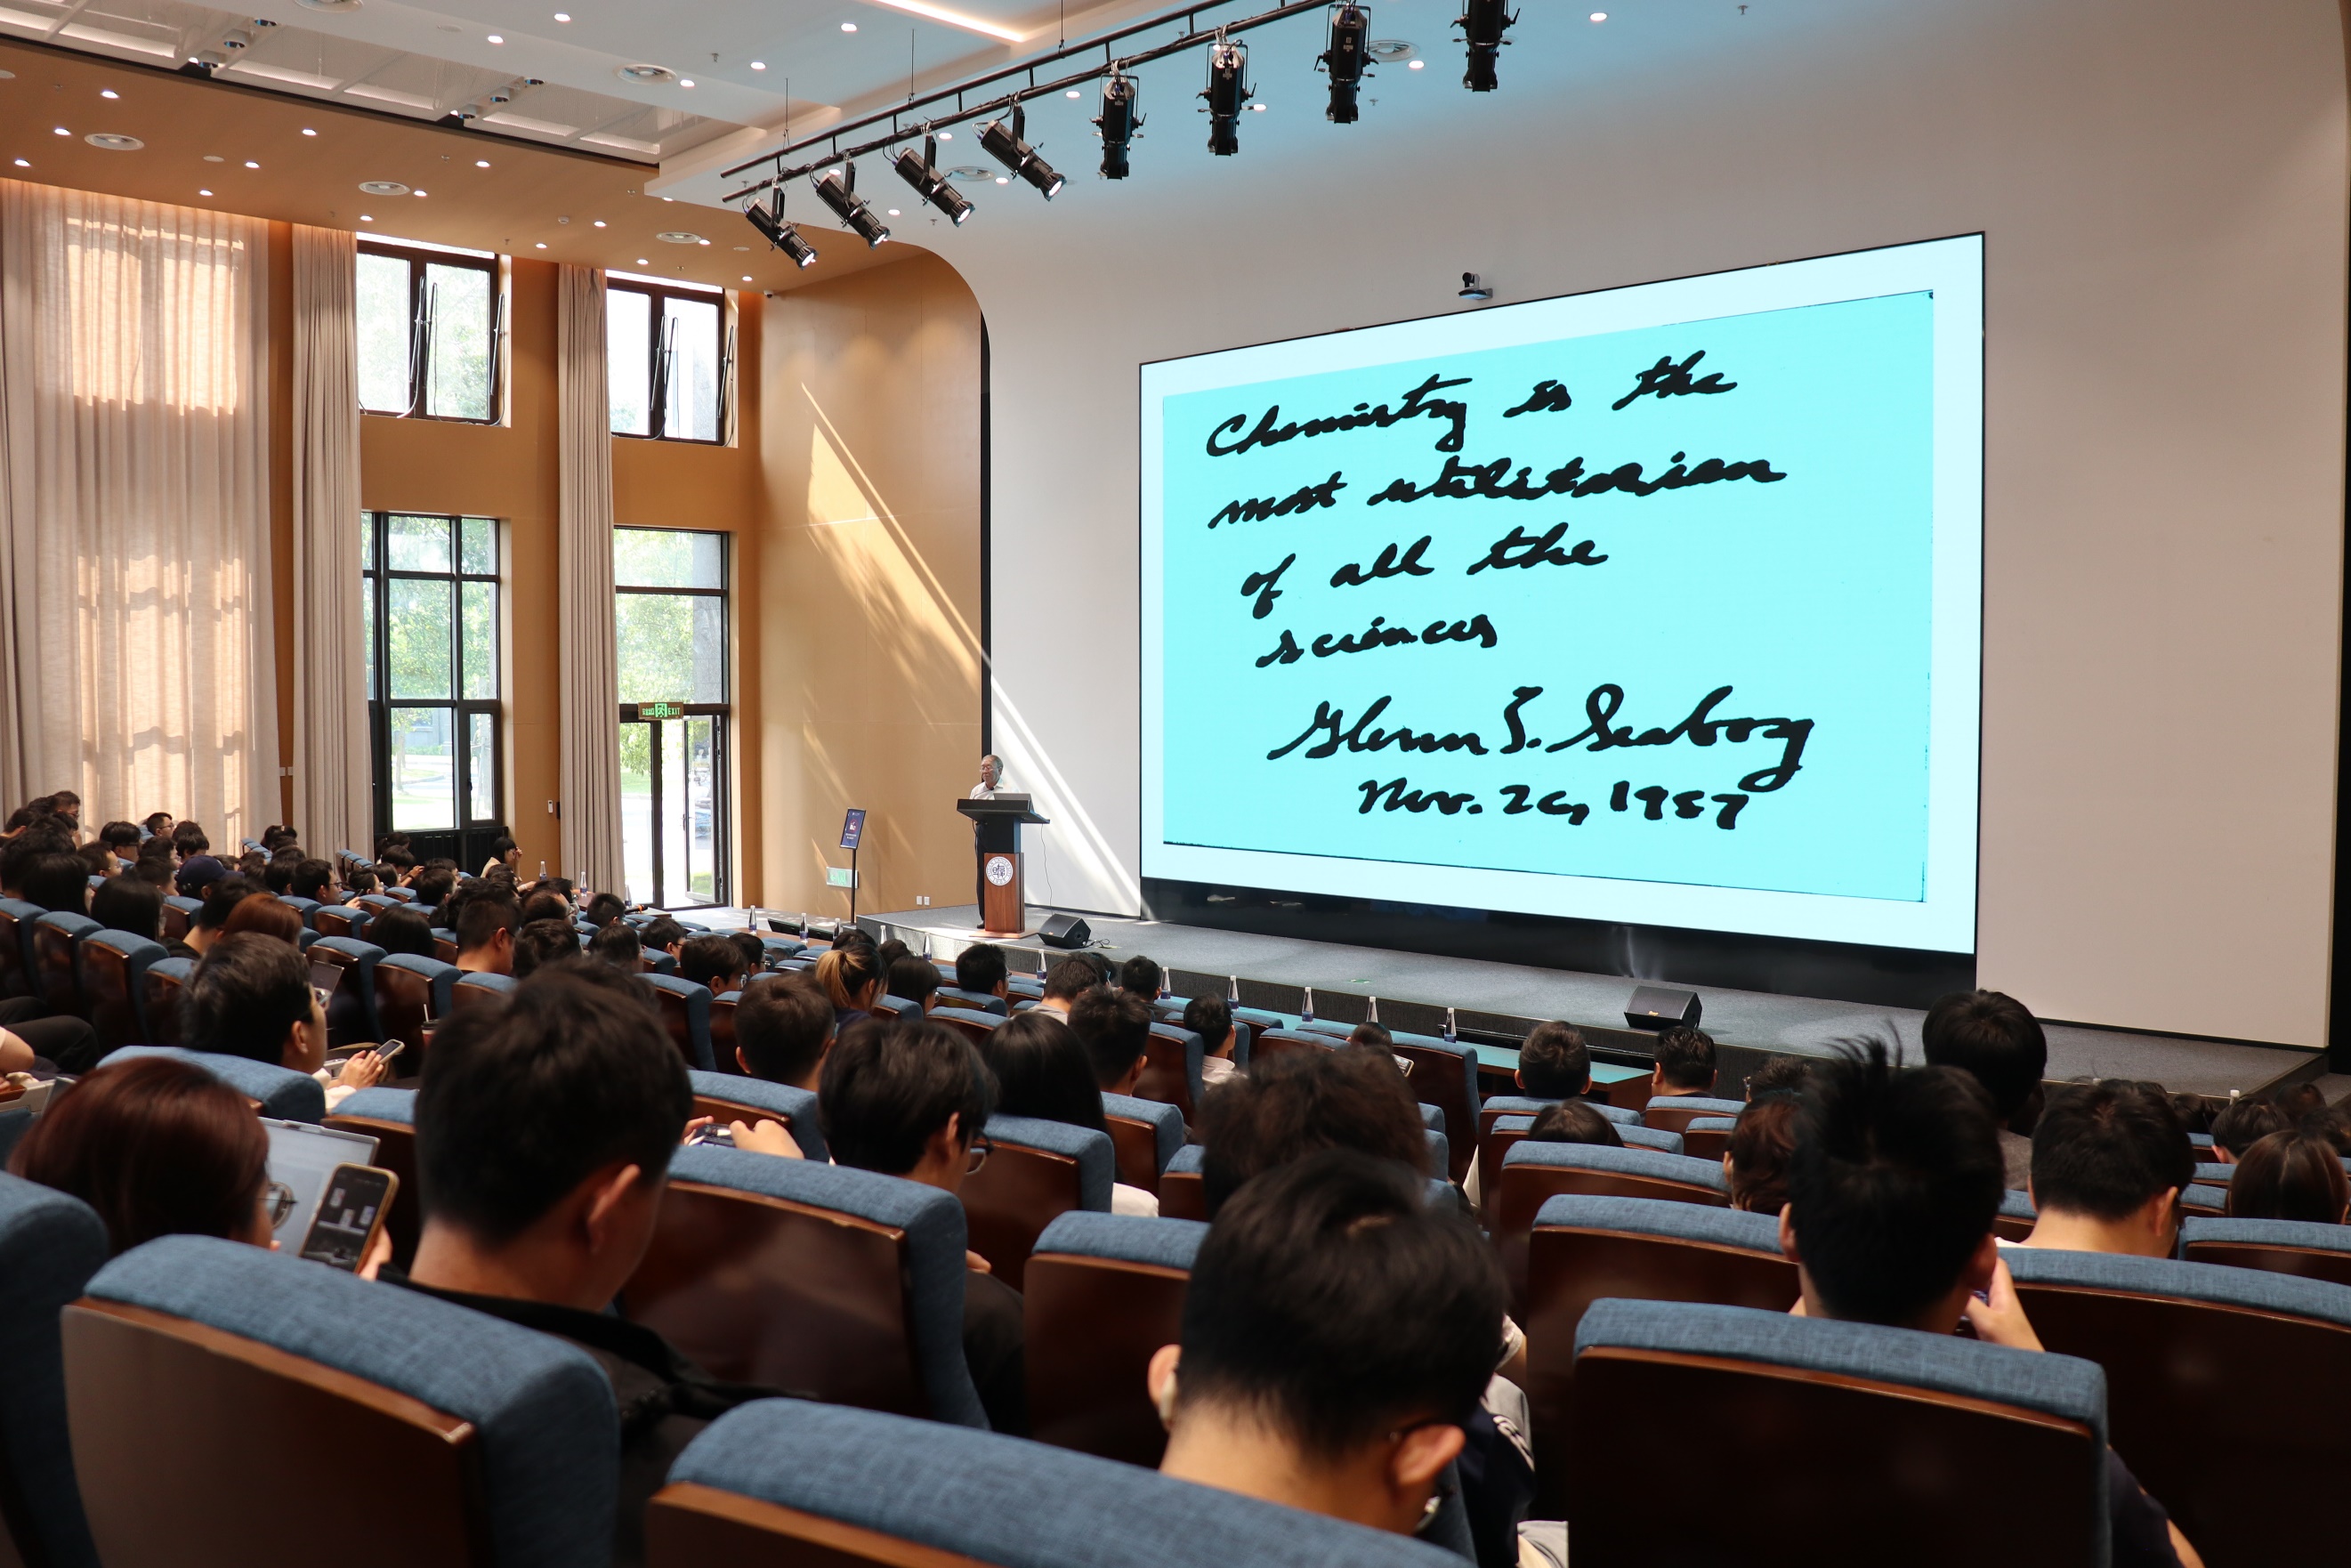 Chemistry is the
most utilitarian
of all the
sciences
Glenn T. Seaborg
Nov. 26, 1987
EXIT